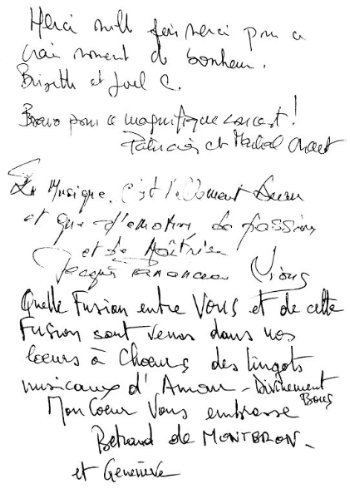 Merci mille fois merci pour ce
vrai moment de bonheur.
Brigitte et Joel C.
Bravo pour ce magnifique concert!
Patricia et
La Musique, c'est tellement
et que d'émotion de passion
et de Maîtrise
Jacques
Quelle Fusion entre VOUS et de cette
Fusion sont venus dans nos
Coeurs à Choeurs des lingots
musicaux d'Amour - Divinement
Mon Coeur Vous embrasse
Bertrand de MONTBRON -
et Geneviève